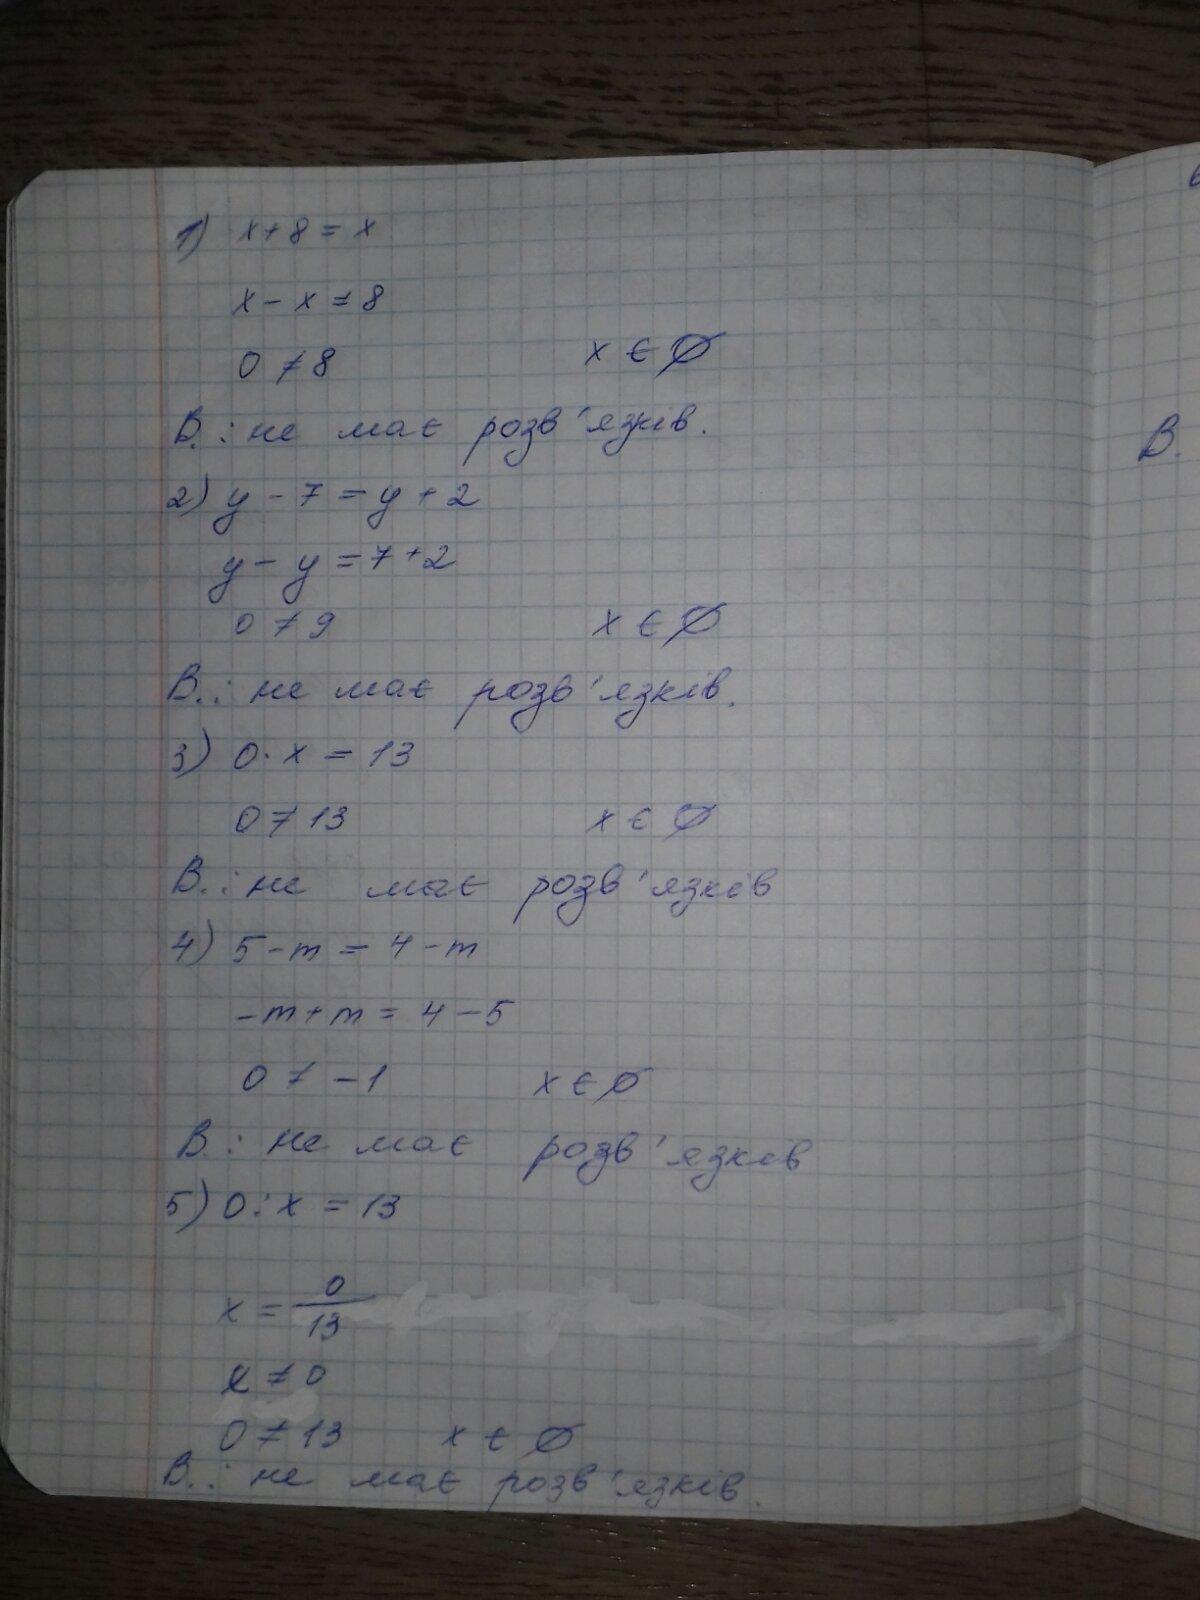 1) x + 8 = x
x - x = 8
0 ≠ 8 x ∈ ∅
В.: не має розв'язків.
2) y - 7 = y + 2
y - y = 7 + 2
0 ≠ 9 x ∈ ∅
В.: не має розв'язків.
3) 0 · x = 13
0 ≠ 13 x ∈ ∅
В.: не має розв'язків
4) 5 - m = 4 - m
-m + m = 4 - 5
0 ≠ -1 x ∈ ∅
В: не має розв'язків
5) 0 : x = 13
x = 0/13
x ≠ 0
0 ≠ 13 x ∈ ∅
В.: не має розв'язків.
В.